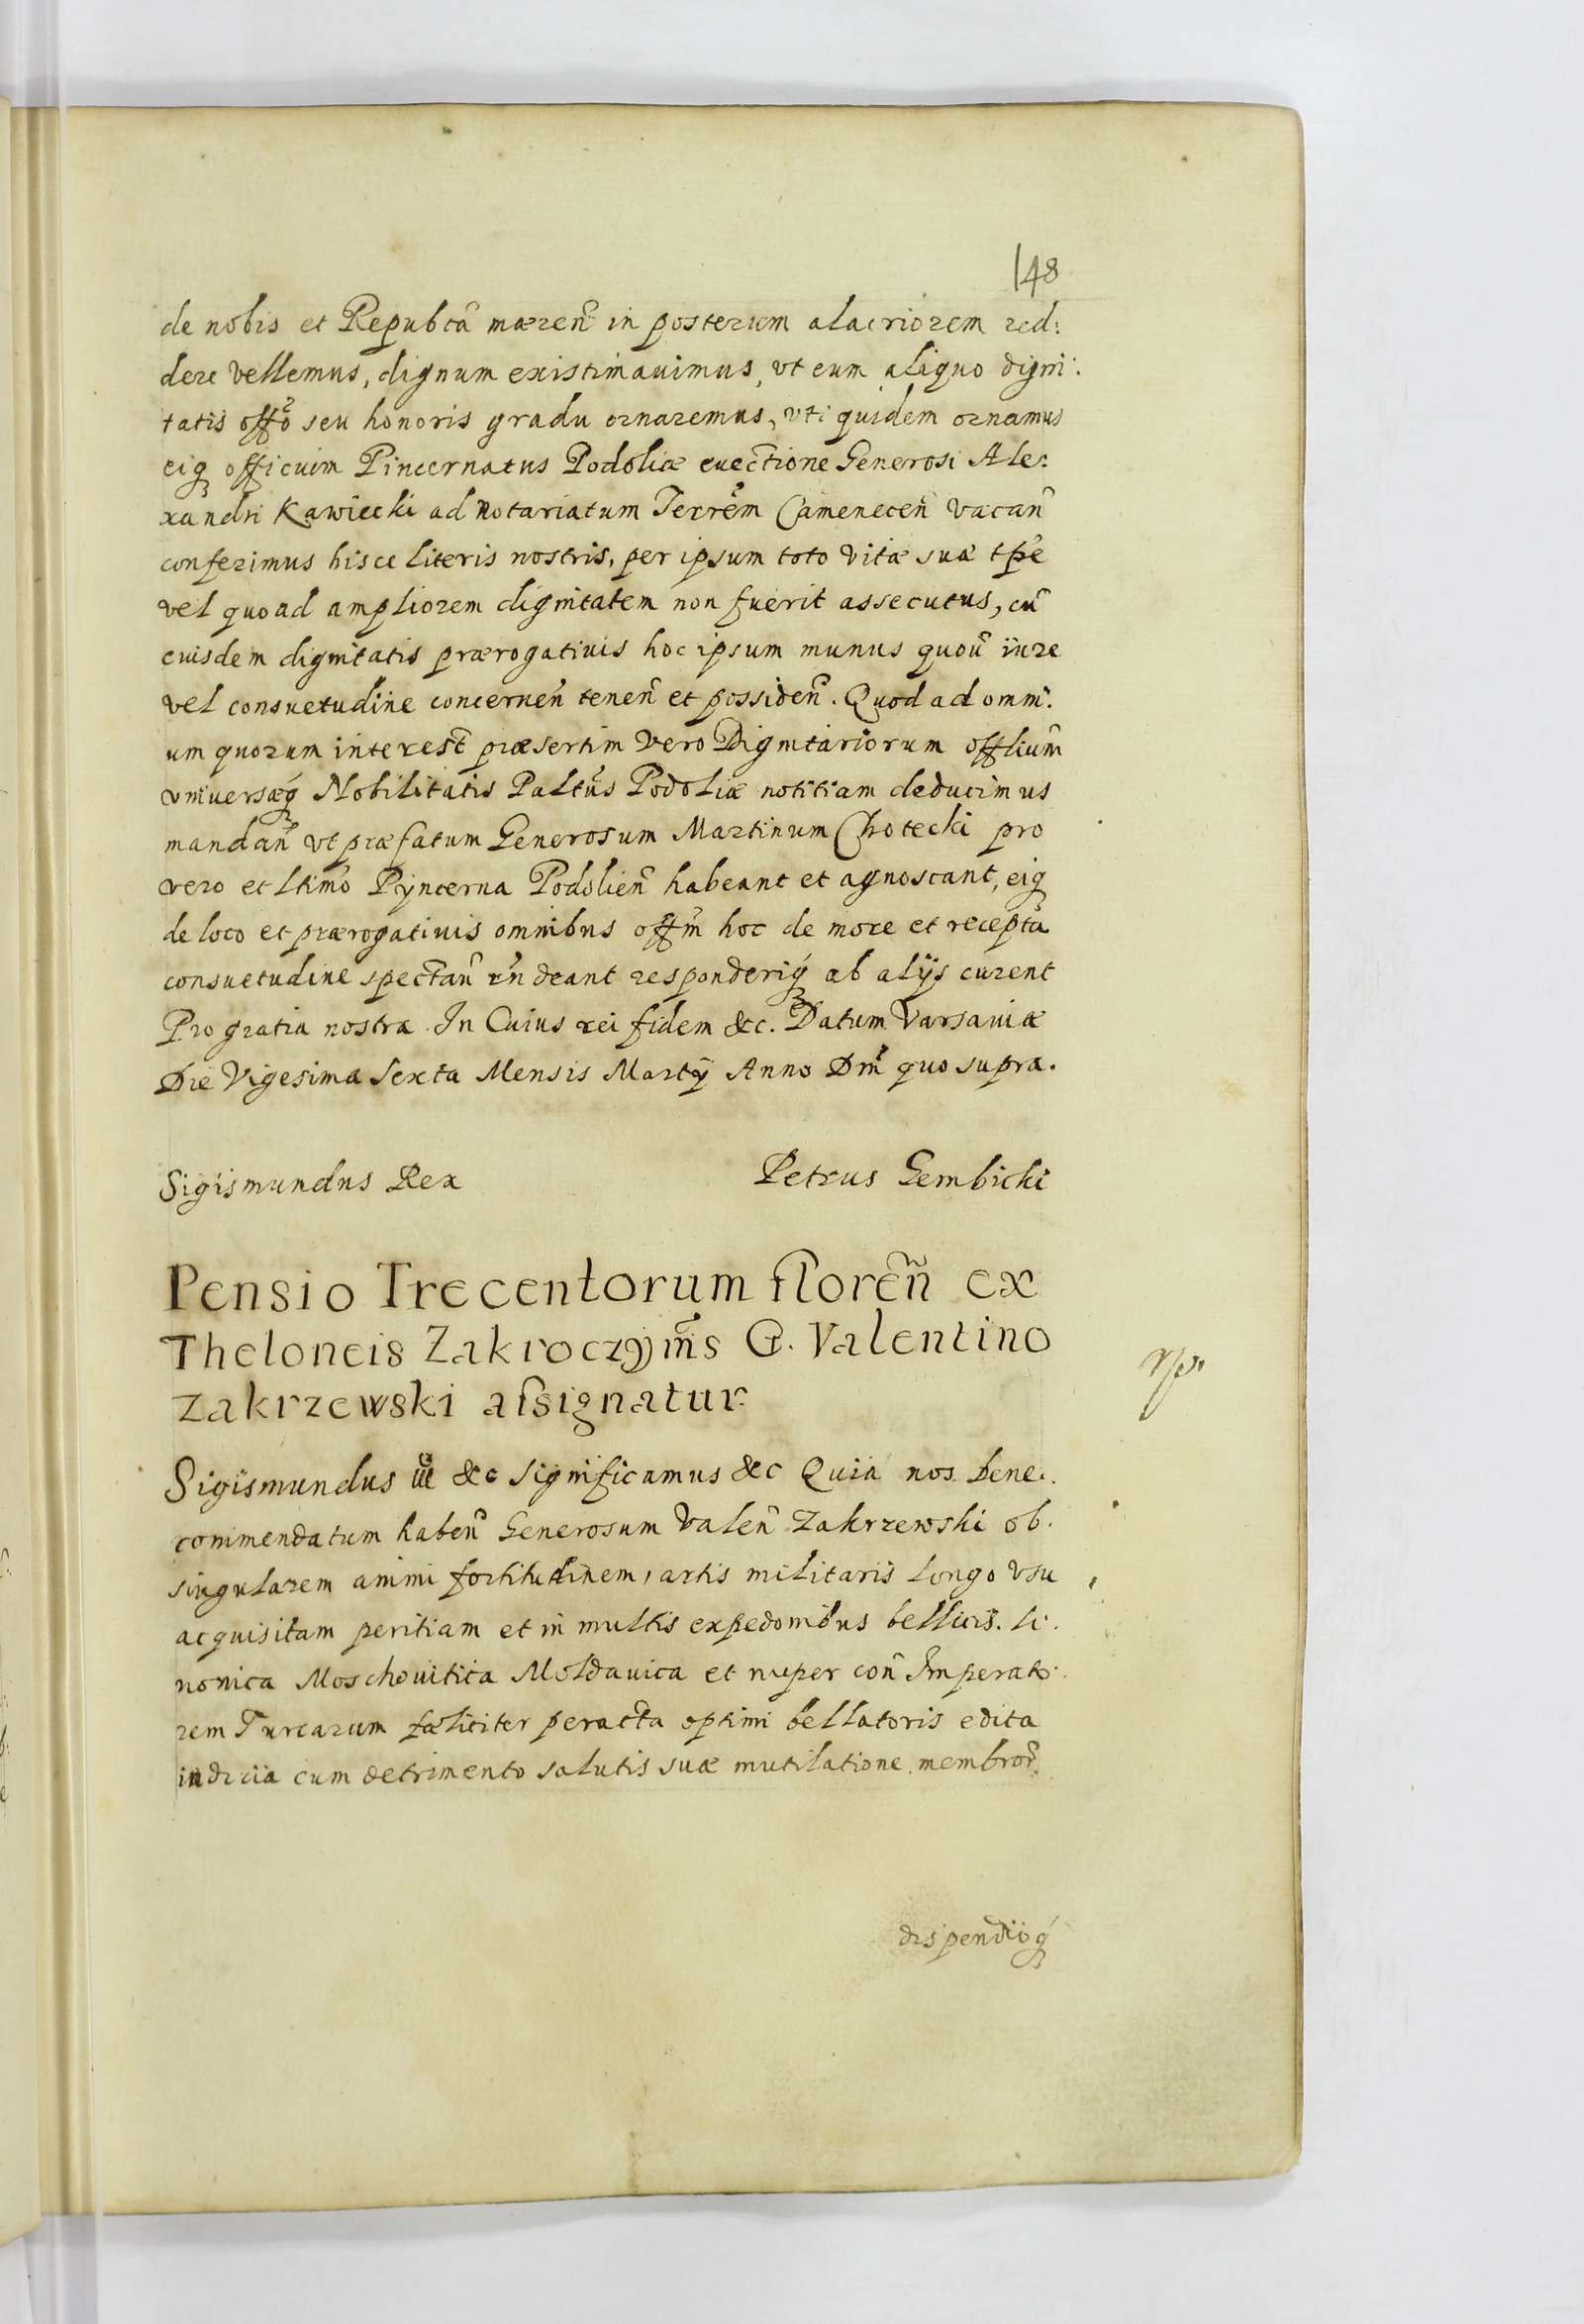 148
de nobis et Repubcã mæren̄ in posterum alacriorem red:
dere vellemus, dignum existimauimus, vt eum aliquo digni:
tatis offõ seu honoris gradu ornaremus, vti quidem ornamus
eiq officium Pincernatus Podoliæ euectione Generosi Ale:
xandri Kawiecki ad Notariatum Terrẽm Camenecen̄ vacan̄
conferimus hisce literis nostris, per ipsum toto vitæ suæ tp̃e
vel quoad ampliorem dignitatem non fuerit assecutus, cũ
euisdem dignitatis prærogatiuis hoc ipsum munus quoũ iure
vel consuetudine concernen̄ tenen̄ et possiden̄. Quod ad omni:
um quorum interest præsertim vero Dignitariorum offlium̃
vniuersæq́ Nobilitatis Paltũs Podoliæ notitiam deducimus
mandan̄ vt præfatum Generosum Martinum Chotecki pro
vero et ltimo Pyncerna Podolien̄ habeant et agnoscant, eiq
de loco et prærogatiuis omnibus offm̃ hoc de more et recepta
consuetudine spectan̄ rñdeant responderiq́ ab alijs curent
Pro gratia nostra. In Cuius rei fidem &c. Datum Varsauiæ
Die Vigesima Sexta Mensis Martij Anno Dm̃ quo supra.
Sigismundus Rex Petrus Gembicki
Pensio Trecentorum floren̄ ex
Theloneis Zakroczym̃s G. Valentino
Zakrzewski aſsignatur.
Sigismundus iii &c significamus &c Quia nos bene.
commendatum haben̄ Generosum Valen̄ Zakrzewski ob.
singularem animi fortitudinem, artis militaris longo vsu
acquisitam peritiam et in multis expedonibus bellicis. Li.
nonica Moschouitica Moldauica et nuper con̄ Imperato.
rem Turcarum fæliciter peracta optimi bellatoris edita
indicia cum detrimento salutis suæ mutilatione membror̃
dispendioq́